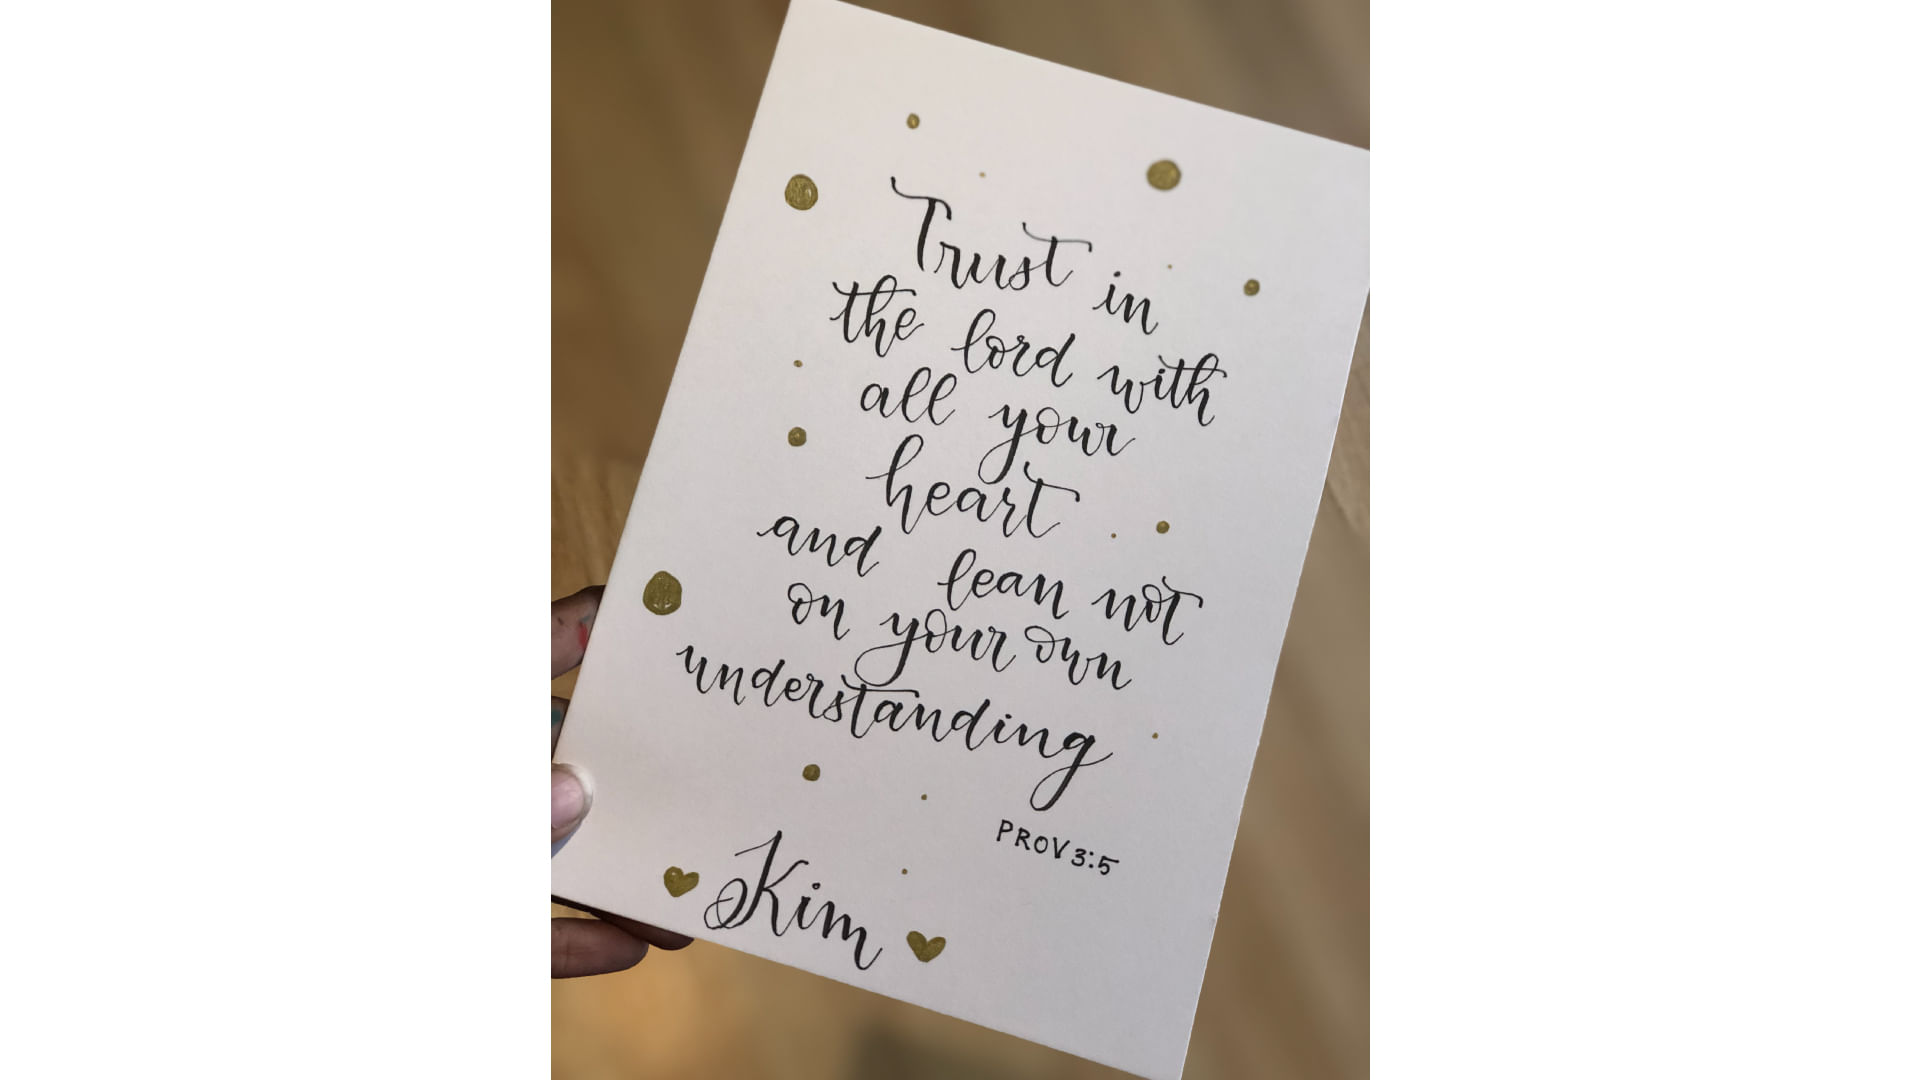 Trust in
the lord with
all your
heart
and lean not
on your own
understanding
PROV 3:5
Kim